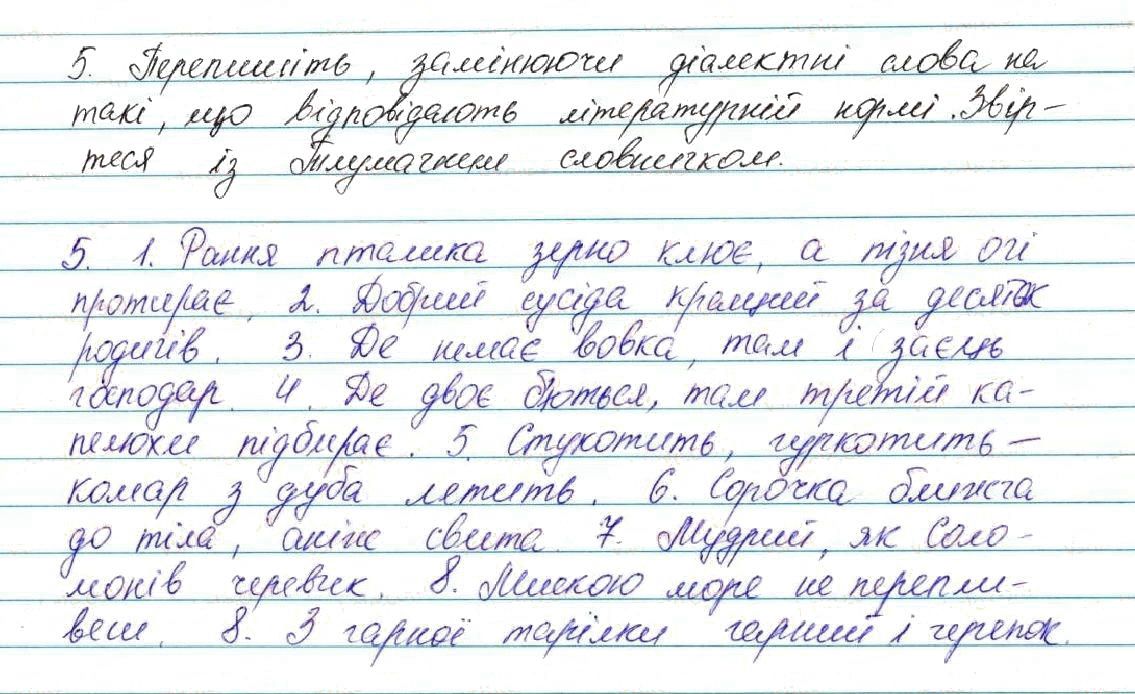 5. Перепишіть, замінюючи діалектні слова на
такі, що відповідають літературній нормі. Звір-
теся із Тлумачним словничком.
5. 1. Рання пташка зерно клює, а пізня очі
протирає. 2. Добрий сусіда кращий за десяток
родичів. 3. Де немає вовка, там і заєць
господар. 4. Де двоє б'ються, там третій ка-
пелюхи підбирає. 5. Стукотить, гуркотить –
комар з дуба летить. 6. Сорочка ближча
до тіла, аніж свита. 7. Мудрий, як Соло-
монів черевик. 8. Мискою море не перепли-
веш. 8. З гарної тарілки гарний і черепок.